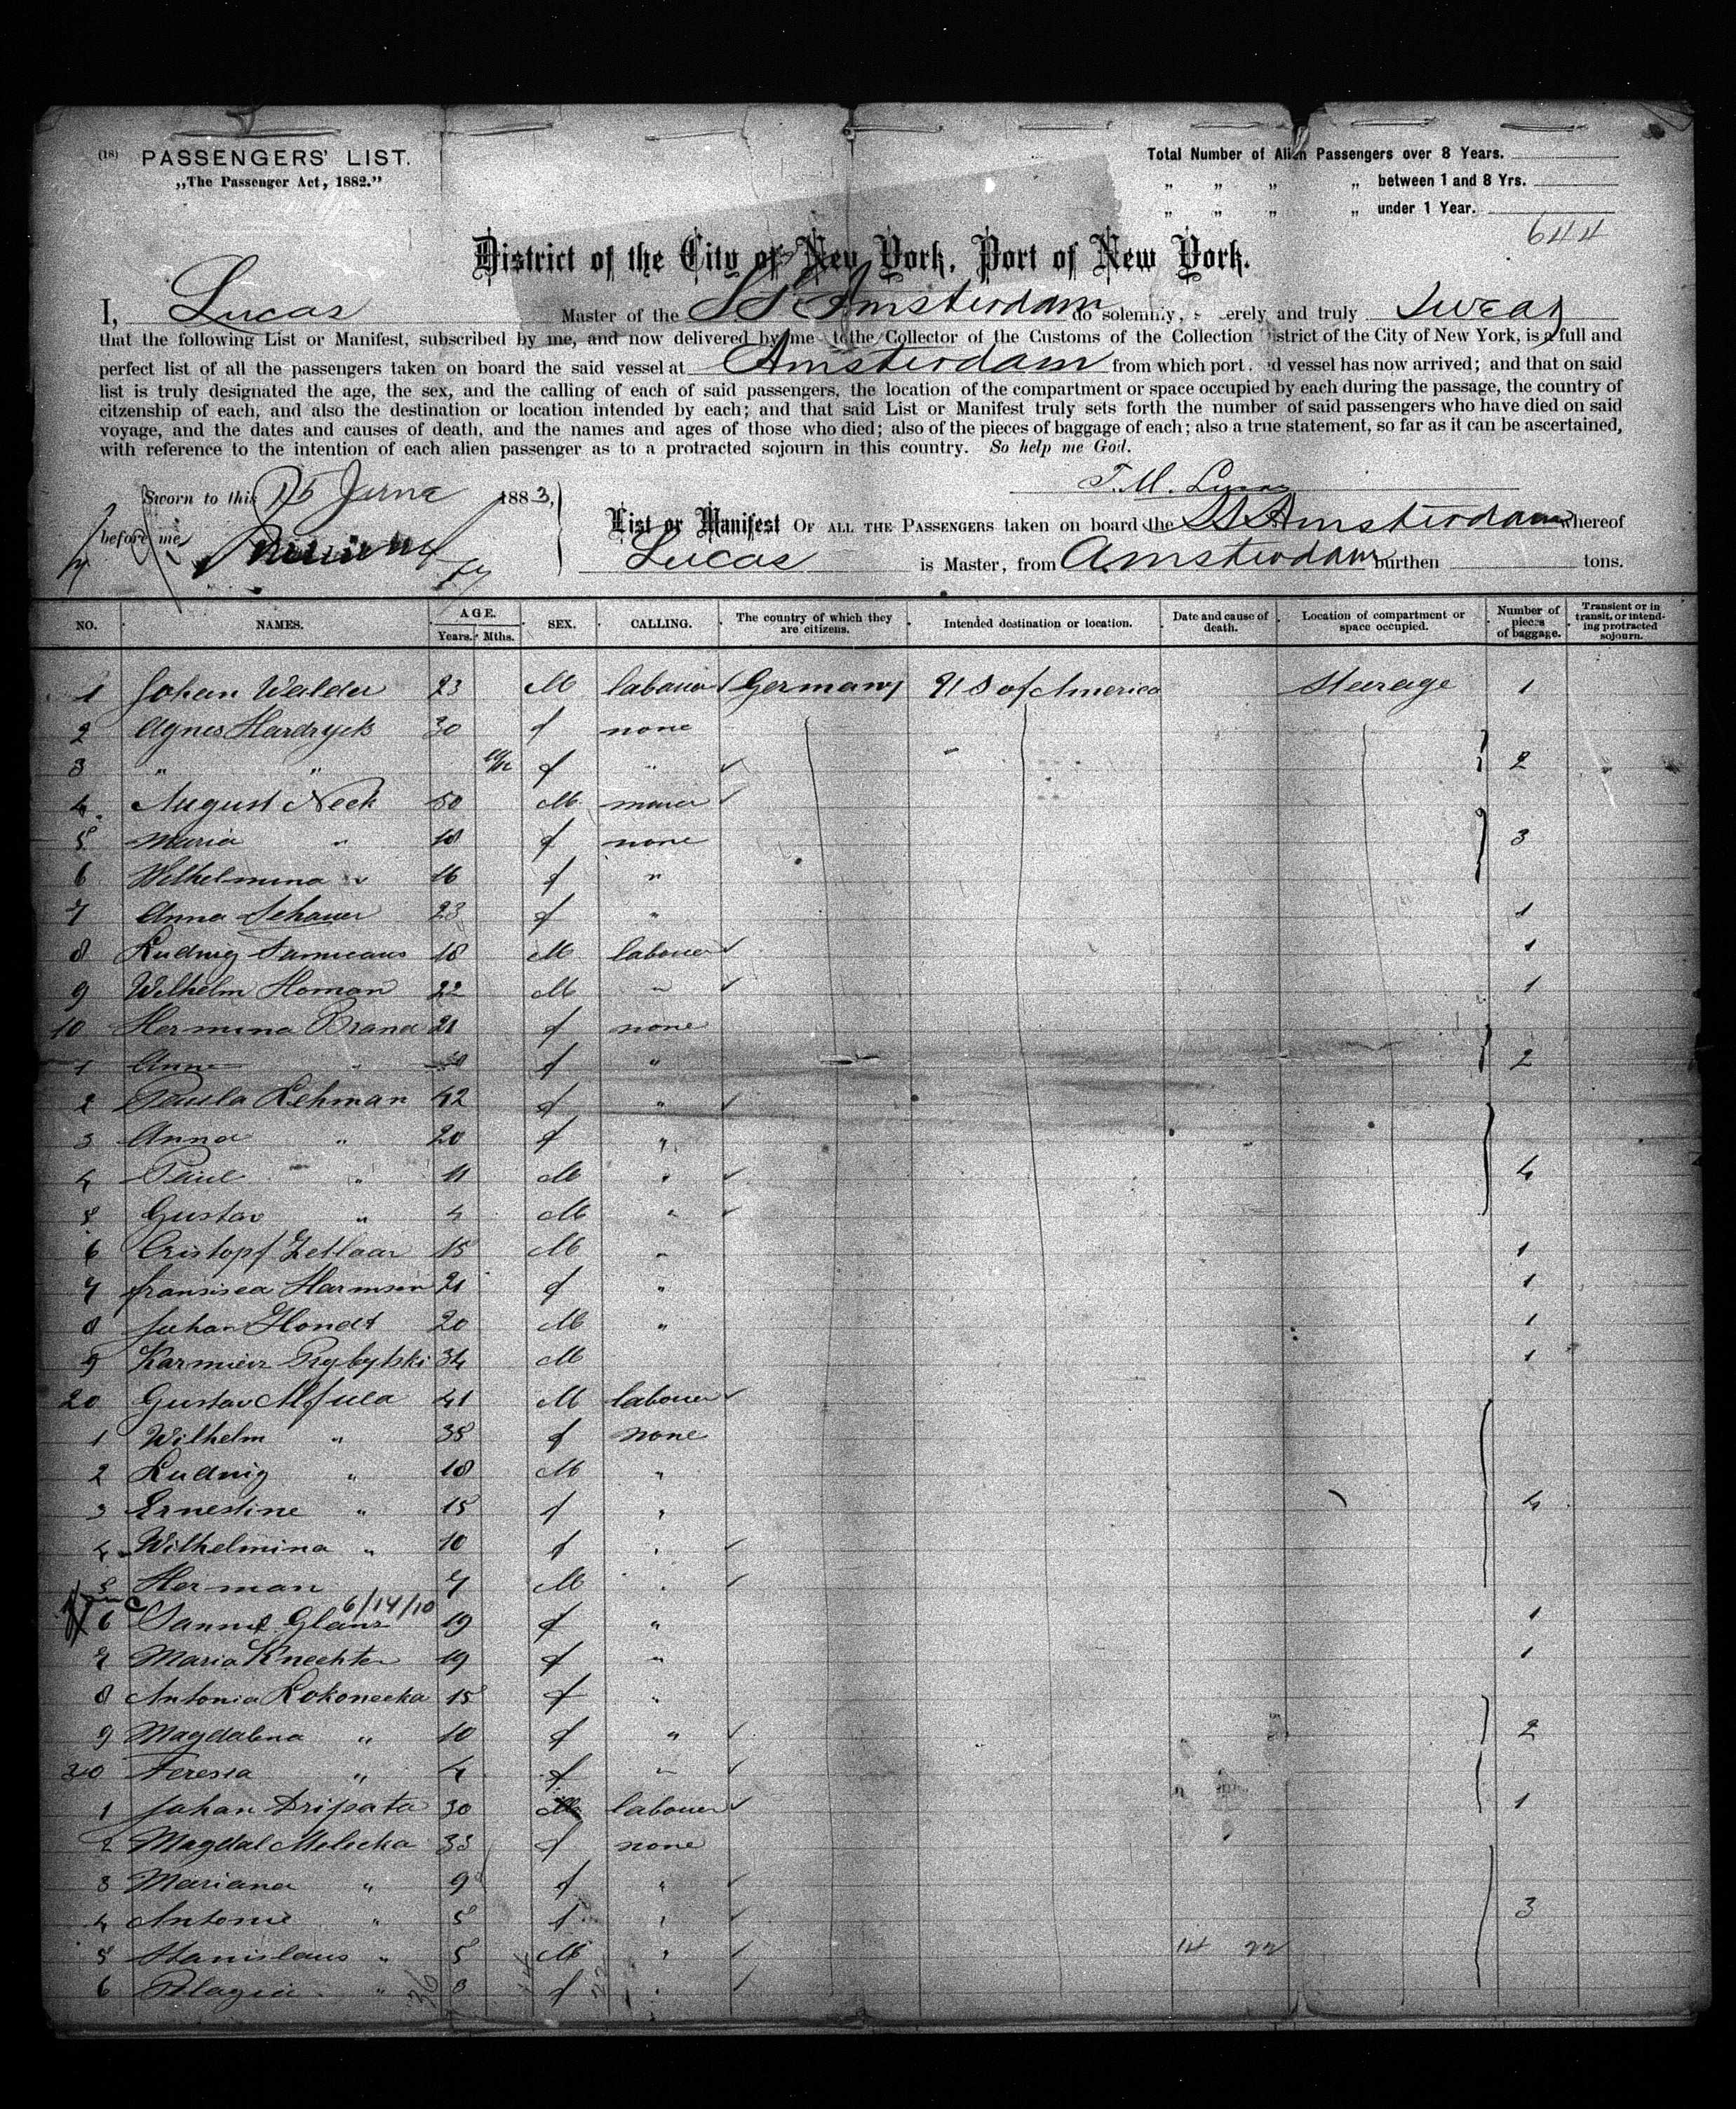 (18) PASSENGERS' LIST.
„The Passenger Act, 1882."
Total Number of Alien Passengers over 8 Years.
„ „ „ „ between 1 and 8 Yrs.
„ „ „ „ under 1 Year.
644
District of the City of New York, Port of New York.
I, Lucas Master of the SS Amsterdam do solemnly, erely and truly swear
that the following List or Manifest, subscribed by me, and now delivered by me to the Collector of the Customs of the Collection istrict of the City of New York, is a full and
perfect list of all the passengers taken on board the said vessel at Amsterdam from which port d vessel has now arrived; and that on said
list is truly designated the age, the sex, and the calling of each of said passengers, the location of the compartment or space occupied by each during the passage, the country of
citzenship of each, and also the destination or location intended by each; and that said List or Manifest truly sets forth the number of said passengers who have died on said
voyage, and the dates and causes of death, and the names and ages of those who died; also of the pieces of baggage of each; also a true statement, so far as it can be ascertained,
with reference to the intention of each alien passenger as to a protracted sojourn in this country. So help me God.
T. M. Lucas
Sworn to this 15 June 1883,
before me
List or Manifest OF ALL THE PASSENGERS taken on board the SS Amsterdam whereof
Lucas is Master, from Amsterdam burthen tons.
NO. NAMES. AGE. Years. Mths. SEX. CALLING. The country of which they are citizens. Intended destination or location. Date and cause of death. Location of compartment or space occupied. Number of pieces of baggage. Transient or in transit, or intending protracted sojourn.
1 Johan Walder 23 M labouer Germany U S of America Steerage 1
2 Agnes Hardryck 30 f none
3 „ „ 10/12 f „ 2
4 August Neck 50 M
5 Maria „ 18 f none 3
6 Wilhelmina „ 16 f „
7 Anna Schauer 23 f „ 1
8 Ludwig 18 M labouer 1
9 Wilhelm Homan 22 M „ 1
10 Hermina Brand 21 f none
1 Anna „ f „ 2
2 Paula Lehman 42 f „
3 Anna „ 20 f „
4 Paul „ 11 M „ 4
5 Gustav „ 4 M „
6 Cristopf Zetlaar 15 M „ 1
7 fransisca Harmsen 21 f „ 1
8 Johan Hondt 20 M „ 1
9 Karmier Prybytski 34 M 1
20 Gustav 41 M labouer
1 Wilhelm „ 38 f none
2 Ludwig „ 18 M „
3 Ernestine „ 15 f „ 4
4 Wilhelmina „ 10 f „
5 Herman 7 M „
6/14/10
6 Glans 19 f „ 1
7 Maria Knechten 19 f „ 1
8 Antonia Lokonecka 15 f „
9 Magdalena „ 10 f „ 2
30 Feresia „ 4 f „
1 Johan Dripata 30 M labouer 1
2 Magdal Melecka 33 f none
3 Mariana „ 9 f „
4 Antonie „ 5 f „ 3
5 Stanislaus „ 5 M „ 14 22
6 Pelagia „ f „